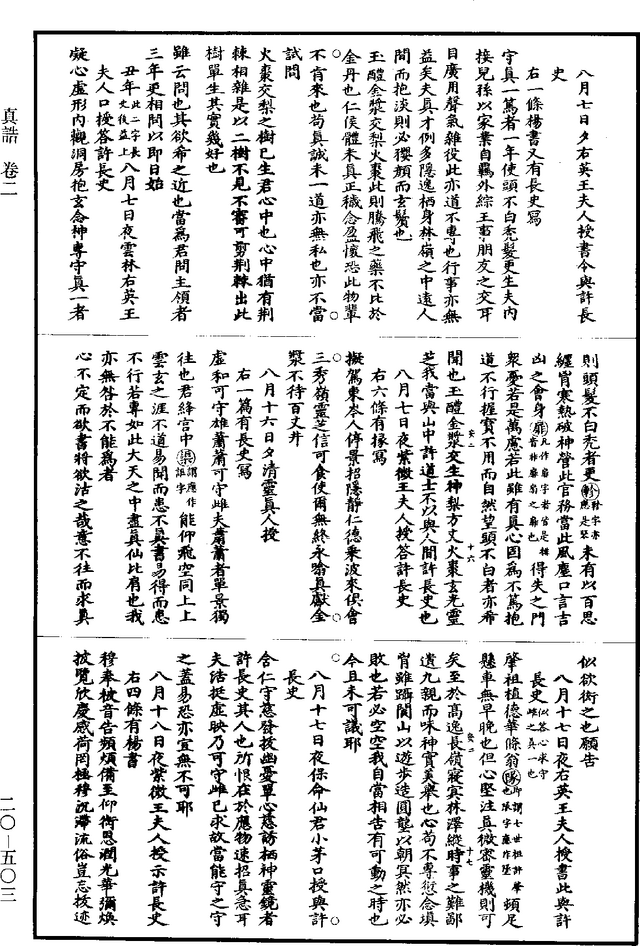 八月七日夕右英王夫人授書令與許長
史
右一條楊書又有長史寫
守真一篤者一年使頭不白禿髮更生夫內
接兒孫以家業自羈外綜王事朋友之交耳
目廣用聲氣雜役此亦道不專也行事亦無
益矣夫真才例多隱逸栖身林嶺之中遠人
間而抱淡則必㜈顏而玄鬢也
玉醴金漿交梨火棗此則騰飛之藥不比於
金丹也仁侯體未真正穢念盈懷恐此物輩
不肯來也苟真誠未一道亦無私也亦不當
試問
火棗交梨之樹已生君心中也心中猶有荆
棘相雜是以二樹不見不審可剪荆棘出此
樹單生其實幾好也
雖云問也其欲希之近也當為君問主領者
三年更相問以即日始
丑年此二字長史後益上八月七日夜雲林右英王
夫人口授答許長史
凝心虛形內觀洞房抱玄念神專守真一者
則頭髮不白禿者更軫軫字亦應是鬒未有以百思
纏胷寒熱破神營此官務當此風塵口言吉
凶之會身扉凡作扉字者皆是排音非扉扇之扉也得失之門
衆憂若是萬慮若此雖有真心固為不篤抱
道不行握寶不用而自然望頭不白者亦希
聞也玉醴金漿交生神梨方丈火棗玄光靈
芝我當與山中許道士不以與人間許長史也
八月七日夜紫微王夫人授答許長史
右六條有掾寫
擬駕東岑人停景招隱靜仁德乘波來俱會
三秀嶺靈芝信可食使爾無終永喻真獻金
漿不待百丈井
右一篇有長史寫
八月十六日夕清靈真人授
虛和可守雄蕭蕭可守雌夫蕭蕭者單景獨
往也君絳宮中渠謂應作詎字能仰飛空同上上
雲玄之涯不道易聞而患不真書易得而患
不行若專如此大天之中盡真仙比肩也我
亦無咎於不能為者
心不定而欲書將欲沽之哉意不往而求真
似欲衒之也願告
八月十七日夜右英王夫人授書此與許
長史似答心求守雌之真一也
肇祖植德華條翁隊即謂七世祖許肇隊字應作墜也頭足
懸車無早晚也但心堅注真微密靈機則可
矣至於高逸長嶺寢宴林澤縱時事之難鄙
遺九親而味神實美舉也心苟不專愆念填
胷雖躋閬山以遊步造圓壟以朝冥然亦必
敗也若必空空我自當相告有可動之時也
今且未可議耶
八月十七日夜保命仙君小茅口授與許
長史
含仁守慈發拔幽憂單心慈訪栖神靈鏡者
許長史其人也所恨在於應物速招真急耳
夫活挺虛映乃可守雌已求故當能守之守
之蓋易恐亦宜無不可耶
八月十八日夜紫微王夫人授示許長史
右四條有楊書
穆奉被音告頻煩備至仰銜恩潤光華彌煥
披覽欣慶感荷罔極穆沉滯流俗豈忘拔迹
真誥 卷二
二〇—五〇三